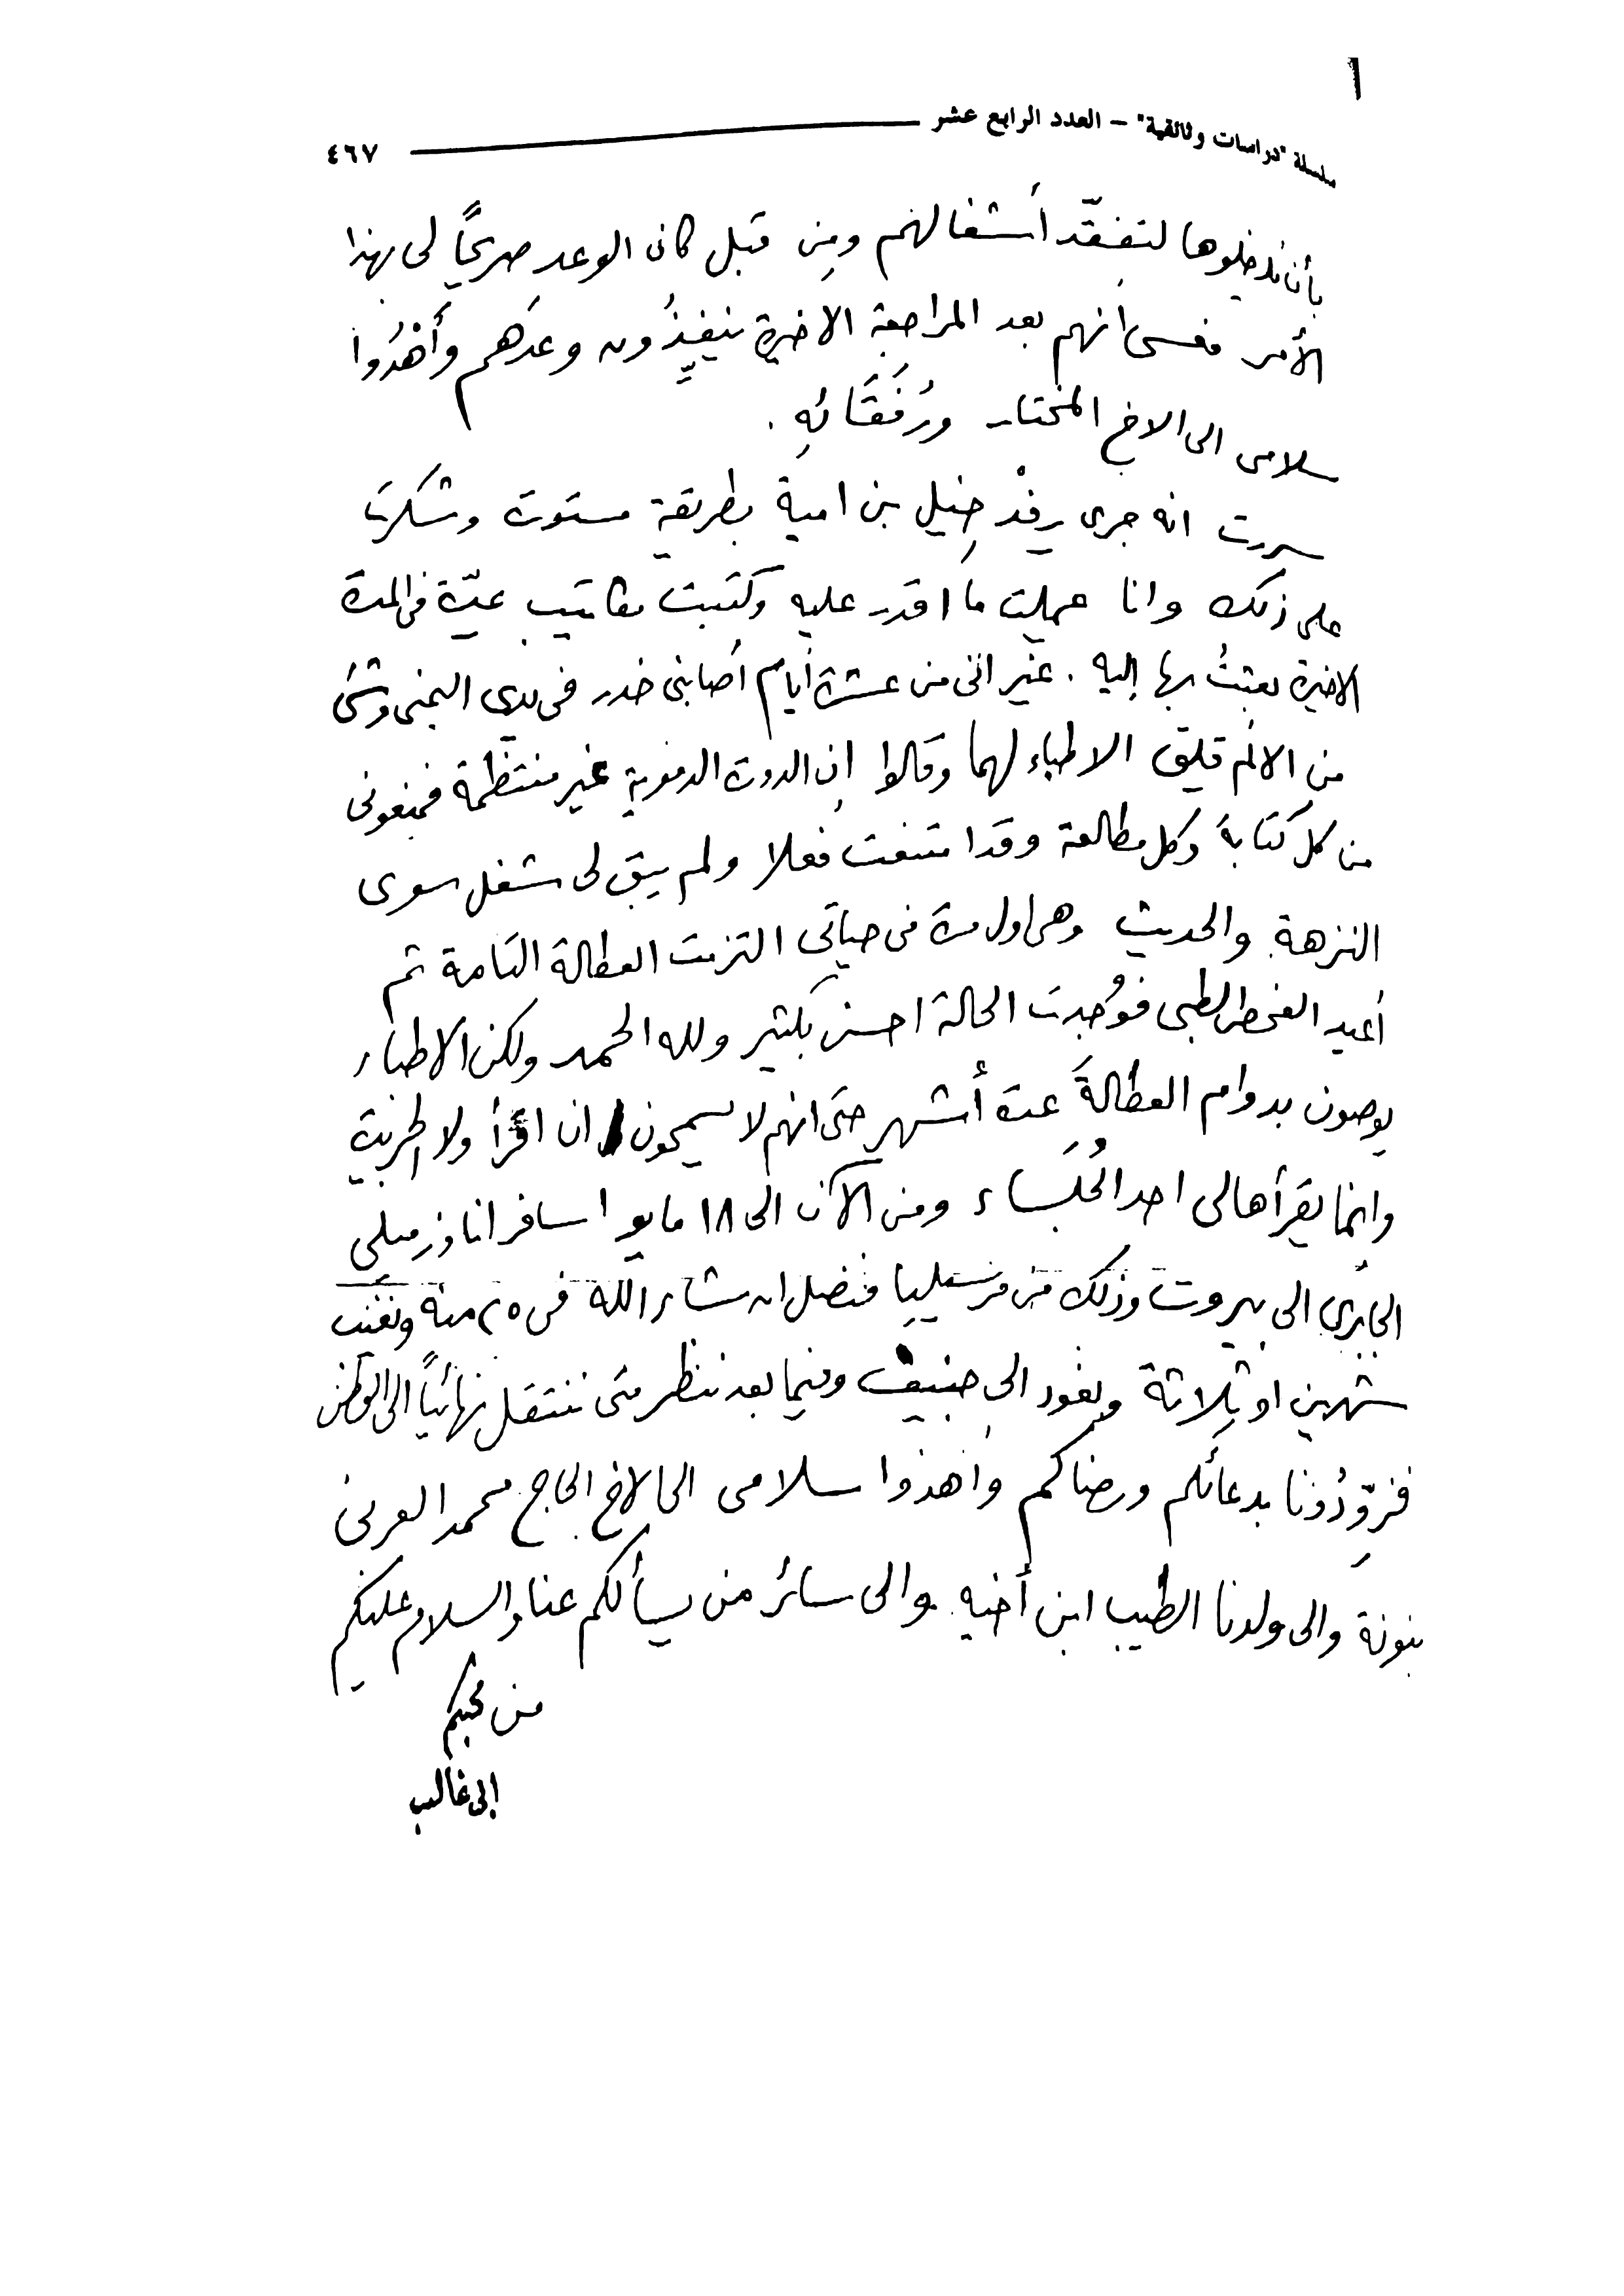 ١
سلسلة "دراسات وثائقية" - العدد الرابع عشر ٤٦٧
بأن يدخلوها لتفقّد أشغالهم ومِن قبل كان الوعد صريحاً لى بهذا
الأمر فعسى انهم بعد المراجعة الاخيرة ينفِّذُون وعدَهم وأَهْدُوا
سلامى الى الاخ المختار ورُفَقَائهِ .
سررت انه جرى رفْد خليل بن امية بطريقة مستوت وشكرت
على ذلك وانا عملت ما اقدر عليه وكتبت مكاتيب عدّة فى المدة
الاخيرة بعثتُ بها إليه . غير اننى من عشرة أيام أصابنى خدر فى يدى اليمنى وشئ
من الألم قلق الاطباء لهما وقالوا إن الدورة الدموية غير منتظمة فمنعونى
من كل كتابة وكل مطالعة وقد امتنعت فعلا ولم يبق لى شغل سوى
النزهة والحديث وهى اول مرة فى حياتى التزمت العطالة التامة ثم
أعيد الفحص الطبى فوُجدت الحالة احسن بكثير ولله الحمد ولكن الاطباء
يوصون بدوام العطالة عدة أشهر حتى انهم لا يسمحون ان اقرأ ولا الجريدة
وانما يقرأها لى احد الجُلَساء ومن الآن الى ١٨ مايو اسافر انا وزميلى
الجابرى الى بيروت وذلك من مرسيليا فنصل ان شاء الله فى ٢٥ منه ونغيب
شهرين او ثلاثة ونعود الى جنيف وفيما بعد ننظر متى ننتقل نهائياً الى الوطن
فزوِّدُونا بدعائكم ورضاكم وأهدوا سلامى الى الاخ الحاج محمد العربى
بنونة والى ولدنا الطيب ابن أخيه والى سائر من يسألكم عنا والسلام عليكم
من محبكم
ابى غالب